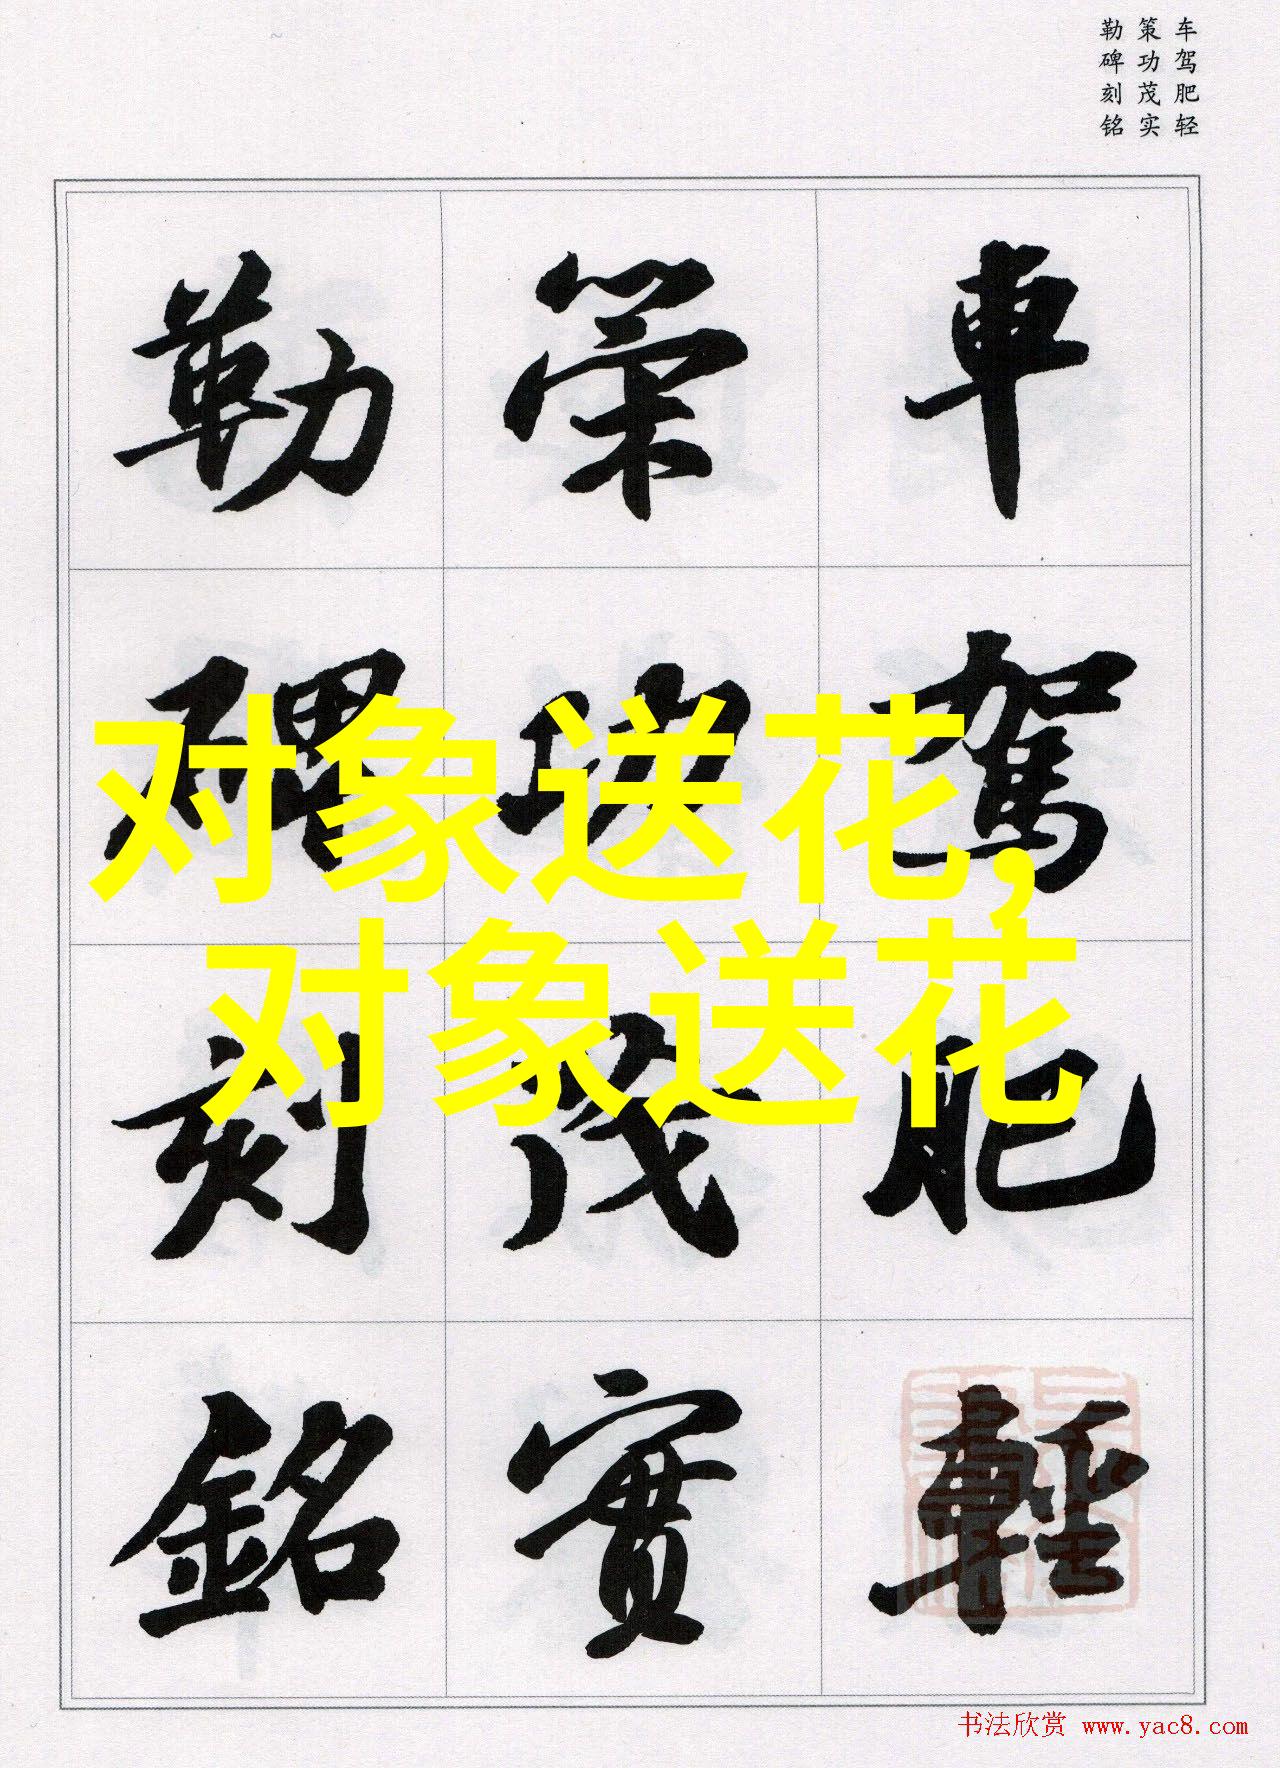 车驾肥轻
策功茂实
勒碑刻铭
車駕肥輕
策功茂實
勒碑刻銘
对象送花,
对象送花
书法欣赏 www.yac8.com